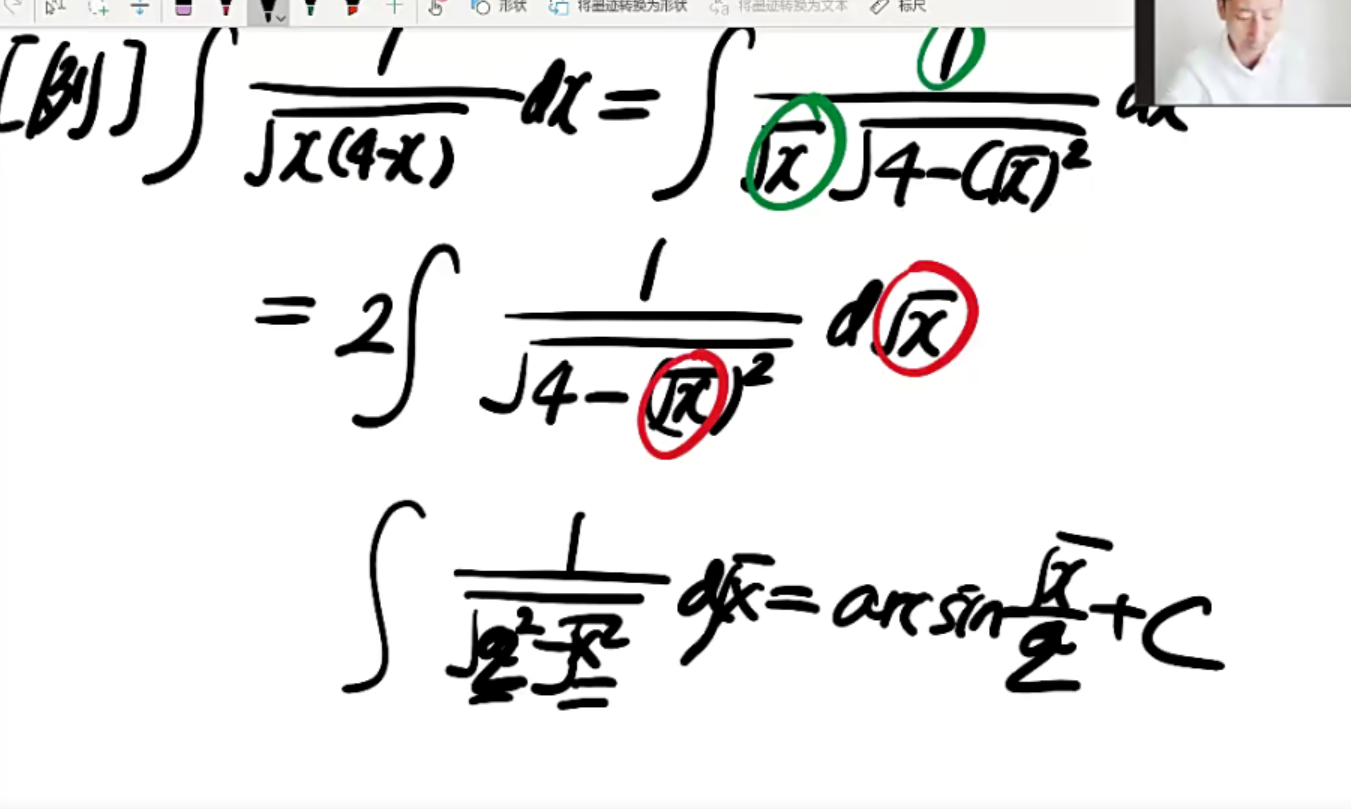 形状 将墨迹转换为形状 将墨迹转换为文本 标尺
[例] ∫ 1/√(x(4-x)) dx = ∫ 1/(√x √(4-(√x)²)) dx
= 2∫ 1/√(4-(√x)²) d√x
∫ 1/√(2²-√x²) d√x = arcsin √x/2 + C